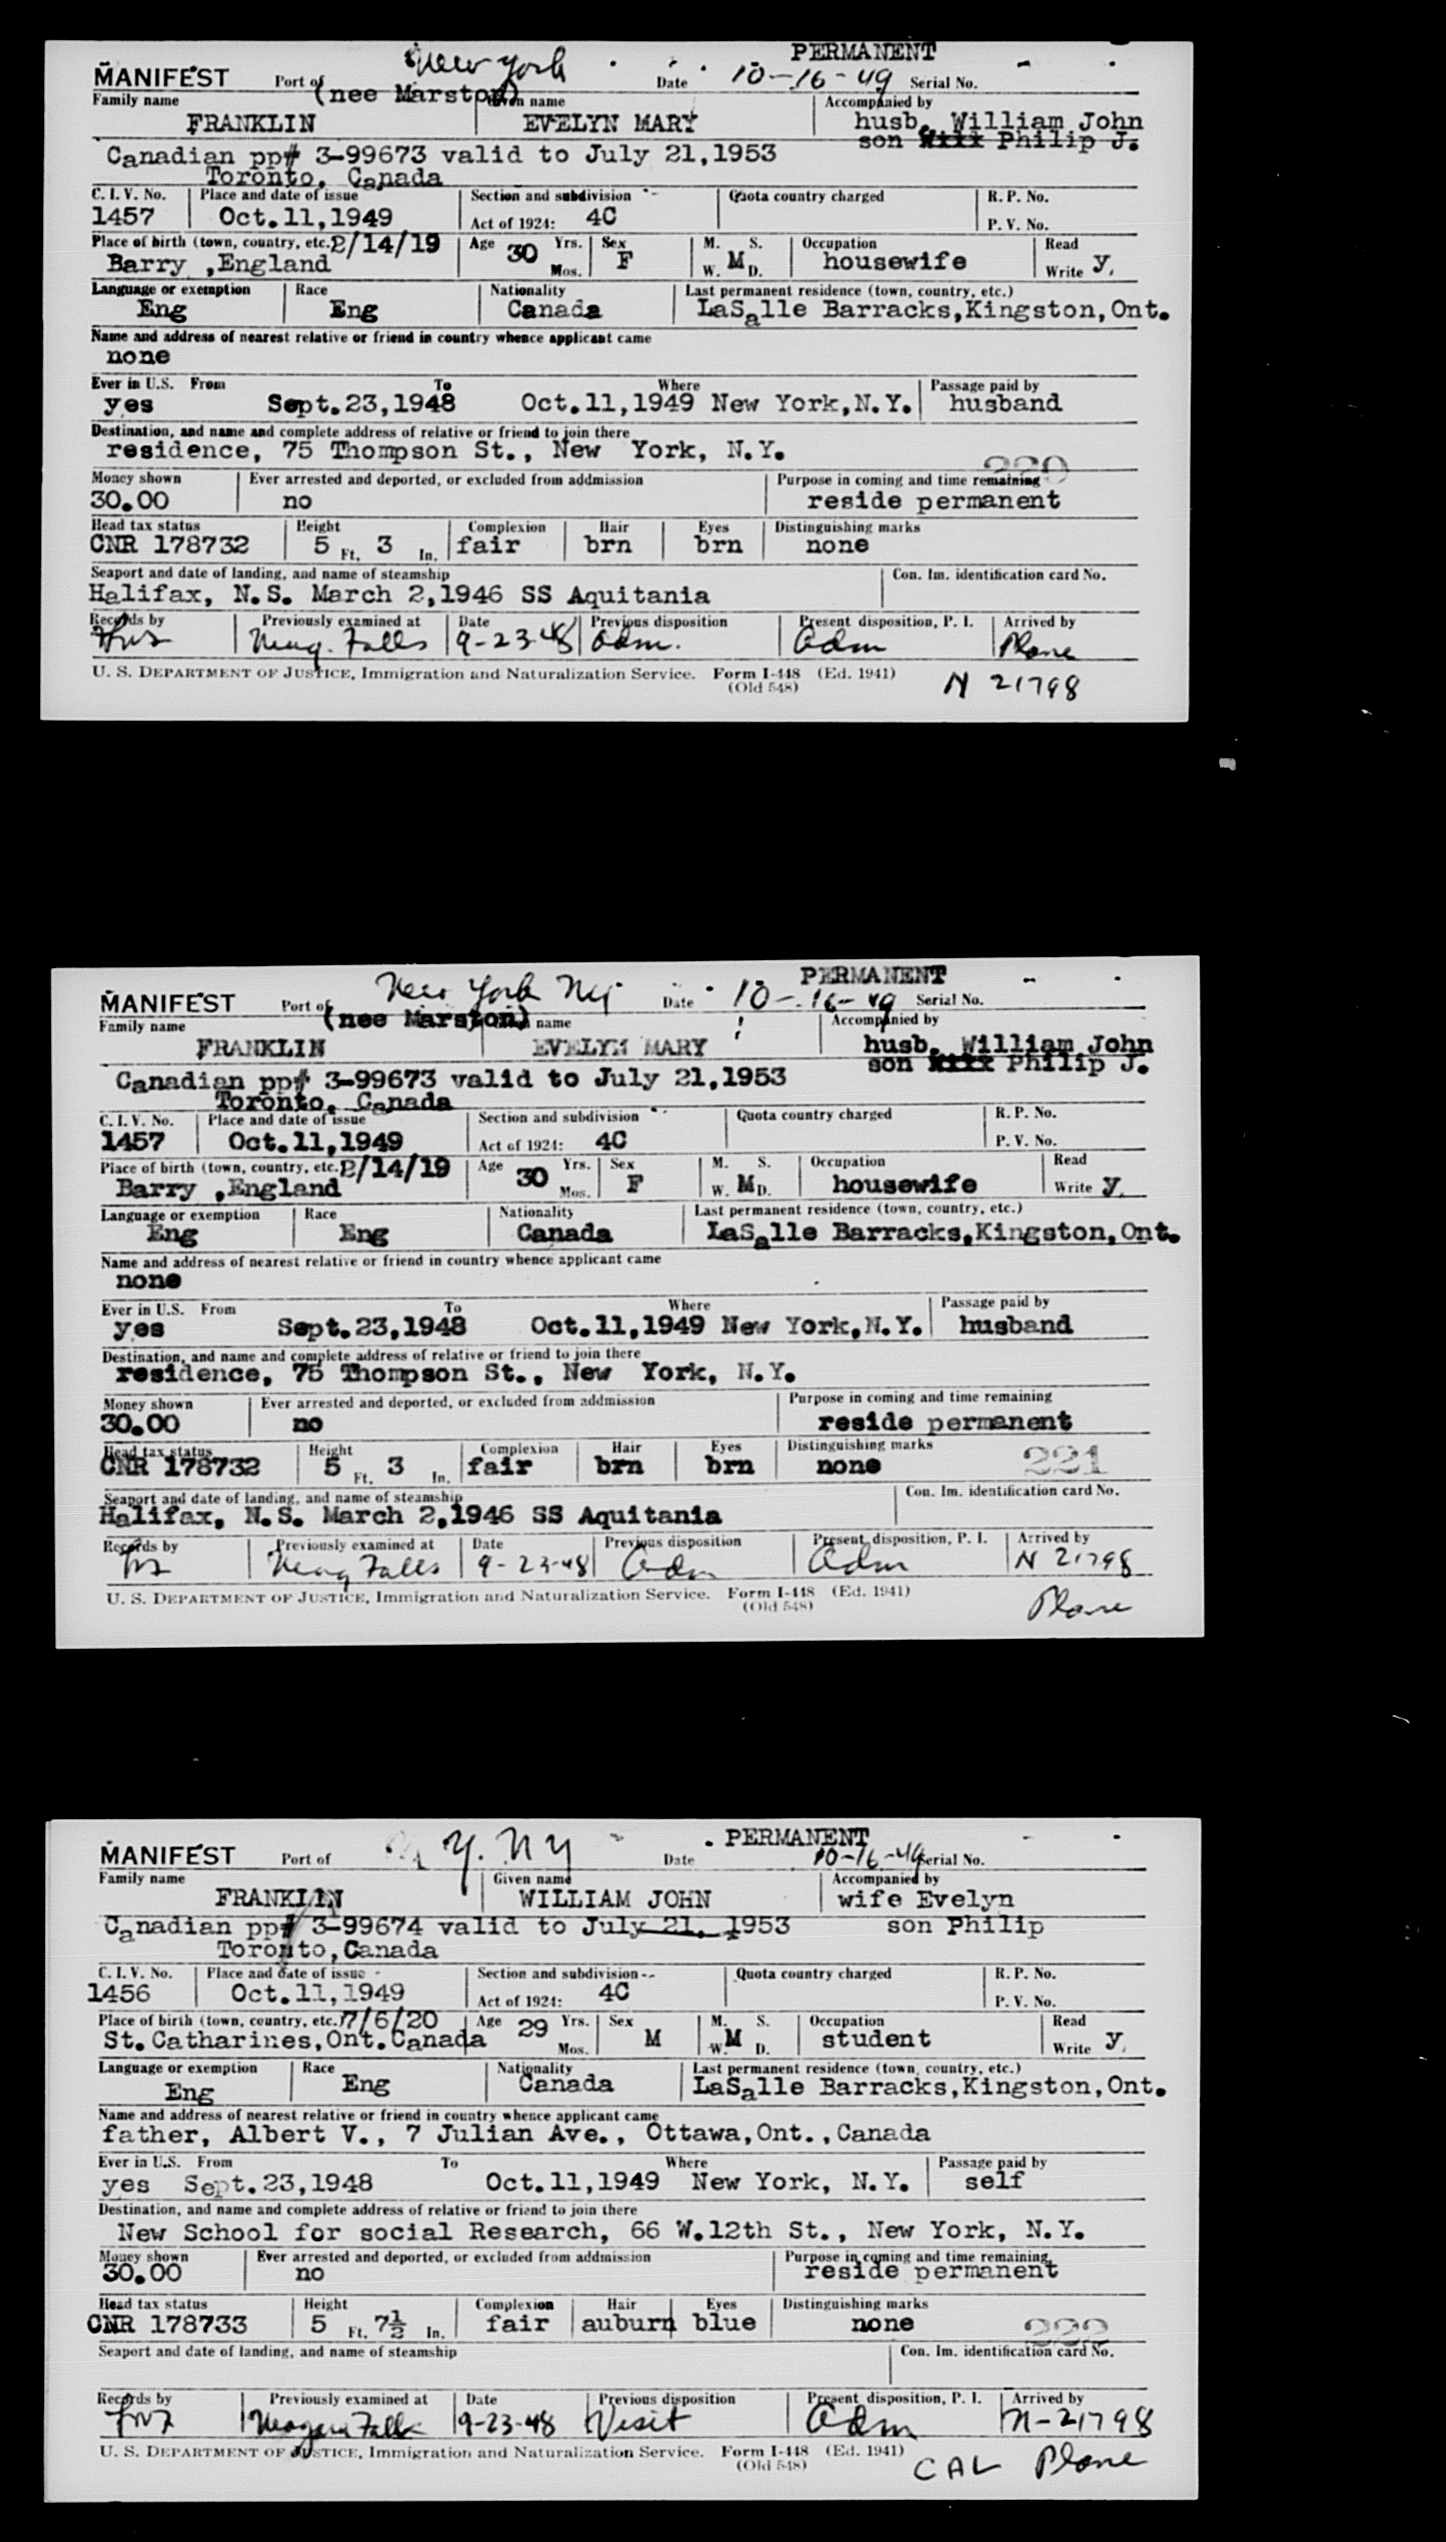 PERMANENT
MANIFEST Port of New York Date 10-16-49 Serial No.
(nee Marston)
Family name Given name Accompanied by
FRANKLIN EVELYN MARY husb. William John
son Philip J.
Canadian pp# 3-99673 valid to July 21,1953
Toronto, Canada
C. I. V. No. Place and date of issue Section and subdivision Quota country charged R. P. No.
1457 Oct.11,1949 Act of 1924: 4C P. V. No.
Place of birth (town, country, etc.) 2/14/19 Age 30 Yrs. Sex M. S. Occupation Read
Barry ,England Mos. F W. M D. housewife Write y.
Language or exemption Race Nationality Last permanent residence (town, country, etc.)
Eng Eng Canada LaSalle Barracks,Kingston,Ont.
Name and address of nearest relative or friend in country whence applicant came
none
Ever in U.S. From To Where Passage paid by
yes Sept.23,1948 Oct.11,1949 New York,N.Y. husband
Destination, and name and complete address of relative or friend to join there
residence, 75 Thompson St., New York, N.Y.
220
Money shown Ever arrested and deported, or excluded from addmission Purpose in coming and time remaining
30.00 no reside permanent
Head tax status Height Complexion Hair Eyes Distinguishing marks
CNR 178732 5 Ft. 3 In. fair brn brn none
Seaport and date of landing, and name of steamship Con. Im. identification card No.
Halifax, N.S. March 2,1946 SS Aquitania
Records by Previously examined at Date Previous disposition Present disposition, P. I. Arrived by
Niag. Falls 9-23-48 adm. adm Plane
U. S. DEPARTMENT OF JUSTICE, Immigration and Naturalization Service. Form I-448 (Ed. 1941)
(Old 548) N 21798
PERMANENT
MANIFEST Port of New York NY Date 10-16-49 Serial No.
(nee Marston)
Family name name Accompanied by
FRANKLIN EVELYN MARY husb. William John
son Philip J.
Canadian pp# 3-99673 valid to July 21,1953
Toronto, Canada
C. I. V. No. Place and date of issue Section and subdivision Quota country charged R. P. No.
1457 Oct.11,1949 Act of 1924: 4C P. V. No.
Place of birth (town, country, etc.) 2/14/19 Age 30 Yrs. Sex M. S. Occupation Read
Barry ,England Mos. F W. M D. housewife Write y.
Language or exemption Race Nationality Last permanent residence (town, country, etc.)
Eng Eng Canada LaSalle Barracks,Kingston,Ont.
Name and address of nearest relative or friend in country whence applicant came
none
Ever in U.S. From To Where Passage paid by
yes Sept.23,1948 Oct.11,1949 New York,N.Y. husband
Destination, and name and complete address of relative or friend to join there
residence, 75 Thompson St., New York, N.Y.
Money shown Ever arrested and deported, or excluded from addmission Purpose in coming and time remaining
30.00 no reside permanent
Head tax status Height Complexion Hair Eyes Distinguishing marks
CNR 178732 5 Ft. 3 In. fair brn brn none 221
Seaport and date of landing, and name of steamship Con. Im. identification card No.
Halifax, N.S. March 2,1946 SS Aquitania
Records by Previously examined at Date Previous disposition Present disposition, P. I. Arrived by
Niag Falls 9-23-48 adm adm N 21798
U. S. DEPARTMENT OF JUSTICE, Immigration and Naturalization Service. Form I-448 (Ed. 1941)
(Old 548) Plane
PERMANENT
MANIFEST Port of N.Y. NY Date 10-16-49 Serial No.
Family name Given name Accompanied by
FRANKLIN WILLIAM JOHN wife Evelyn
Canadian pp# 3-99674 valid to July 21, 1953 son Philip
Toronto,Canada
C. I. V. No. Place and date of issue Section and subdivision Quota country charged R. P. No.
1456 Oct.11,1949 Act of 1924: 4C P. V. No.
Place of birth (town, country, etc.) 7/6/20 Age 29 Yrs. Sex M. S. Occupation Read
St.Catharines,Ont.Canada Mos. M W. M D. student Write y.
Language or exemption Race Nationality Last permanent residence (town, country, etc.)
Eng Eng Canada LaSalle Barracks,Kingston,Ont.
Name and address of nearest relative or friend in country whence applicant came
father, Albert V., 7 Julian Ave., Ottawa,Ont.,Canada
Ever in U.S. From To Where Passage paid by
yes Sept.23,1948 Oct.11,1949 New York, N.Y. self
Destination, and name and complete address of relative or friend to join there
New School for social Research, 66 W.12th St., New York, N.Y.
Money shown Ever arrested and deported, or excluded from addmission Purpose in coming and time remaining
30.00 no reside permanent
Head tax status Height Complexion Hair Eyes Distinguishing marks
CNR 178733 5 Ft. 7½ In. fair auburn blue none 222
Seaport and date of landing, and name of steamship Con. Im. identification card No.
Records by Previously examined at Date Previous disposition Present disposition, P. I. Arrived by
Niagara Falls 9-23-48 Visit adm N-21798
U. S. DEPARTMENT OF JUSTICE, Immigration and Naturalization Service. Form I-448 (Ed. 1941)
(Old 548) CAL Plane